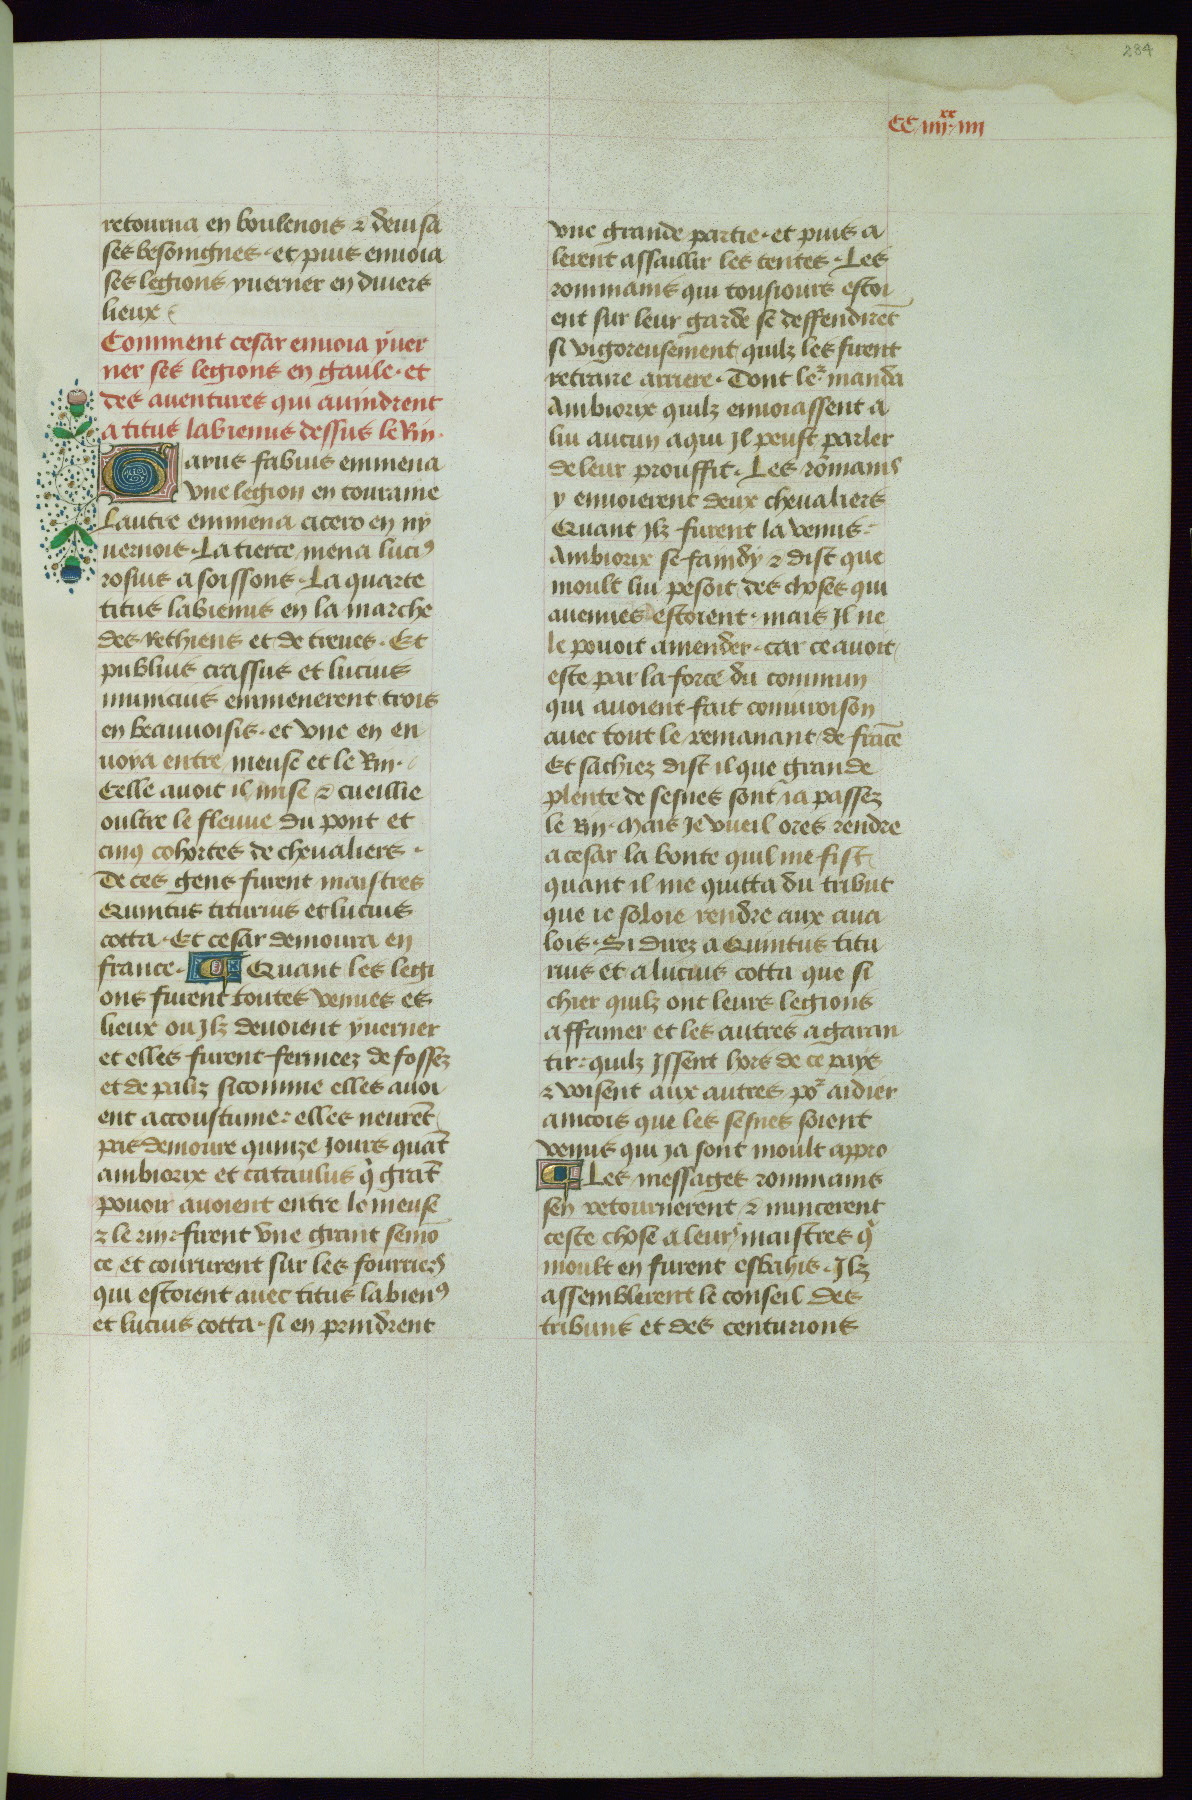 284
CC iiii.xx iiii
retourna en boulenois ⁊ deuisa
ses besoingnes · et puis enuoia
ses legions yuerner en diuers
lieux
Comment cesar enuoia yuer
ner ses legions en gaule · et
des auentures qui auindrent
a titus labienus dessus le Rin ·
Garus fabius emmena
vne legion en touraine
Lautre emmena cicero en ny
uernois · La tierce mena luciꝰ
rosius a soissons · La quarte
titus labienus en la marche
des Rethiens et de treues · Et
publius crassus et lucius
municius emmenerent trois
en beauuoisis · et vne en en
uoya entre meuse et le Rin ·
Celle auoit il mise ⁊ cueillie
oultre le fleuue du pont et
cinq cohortes de cheualiers ·
De ces gens furent maistres
Quintus titurius et lucius
cotta · Et cesar demoura en
france · Quant les legi
ons furent toutes venues es
lieux ou Ilz deuoient yuerner
et elles furent fermeez de fossez
et de paliz sicomme elles auoi
ent accoustume: elles neurēt
pas demoure quinze Jours quāt
ambiorix et cataulus q̇ grāt
pouoir auoient entre le meuse
⁊ le rin: firent vne grant semō
ce et coururent sur les fourriers
qui estoient auec titus labienꝰ
et lucius cotta · si en prindrent
vne grande partie · et puis a
lerent assaillir les tentes · Les
rommains qui tousiours estoi
ent sur leur garde se deffendirēt
si vigoreusement quilz les firent
retraire arriere · Dont leᷣ manda
Ambiorix quilz enuoiassent a
lui aucun a qui Jl peust parler
de leur prouffit · Les rōmains
y enuoierent deux cheualiers
Quant Ilz furent la venus:
Ambiorix se faindy ⁊ dist que
moult lui pesoit des choses qui
auenues estoient · mais Jl ne
le pouoit amender · car ce auoit
este par la force du commun
qui auoient fait coniuroison
auec tout le remanant de frāce
Et sachiez dist il que grande
plente de sesnes sont ia passez
le Rin · Mais Je vueil ores rendre
a cesar la bonte quil me fist
quant il me quitta du tribut
que ie soloie rendre aux aua
lois · Si direz a Quintus titu
rius et a lucius cotta que si
chier quilz ont leurs legions
affamer et les autres a garan
tir: quilz Jssent hors de ce pays
⁊ voisent aux autres poᷣ aidier
aincois que les sesnes soient
venus qui ja sont moult appro
Les messages rommains
sen retournerent ⁊ nuncerent
ceste chose a leurs maistres q̇
moult en furent esbahis · Jlz
assemblerent le conseil des
tribuns et des centurions